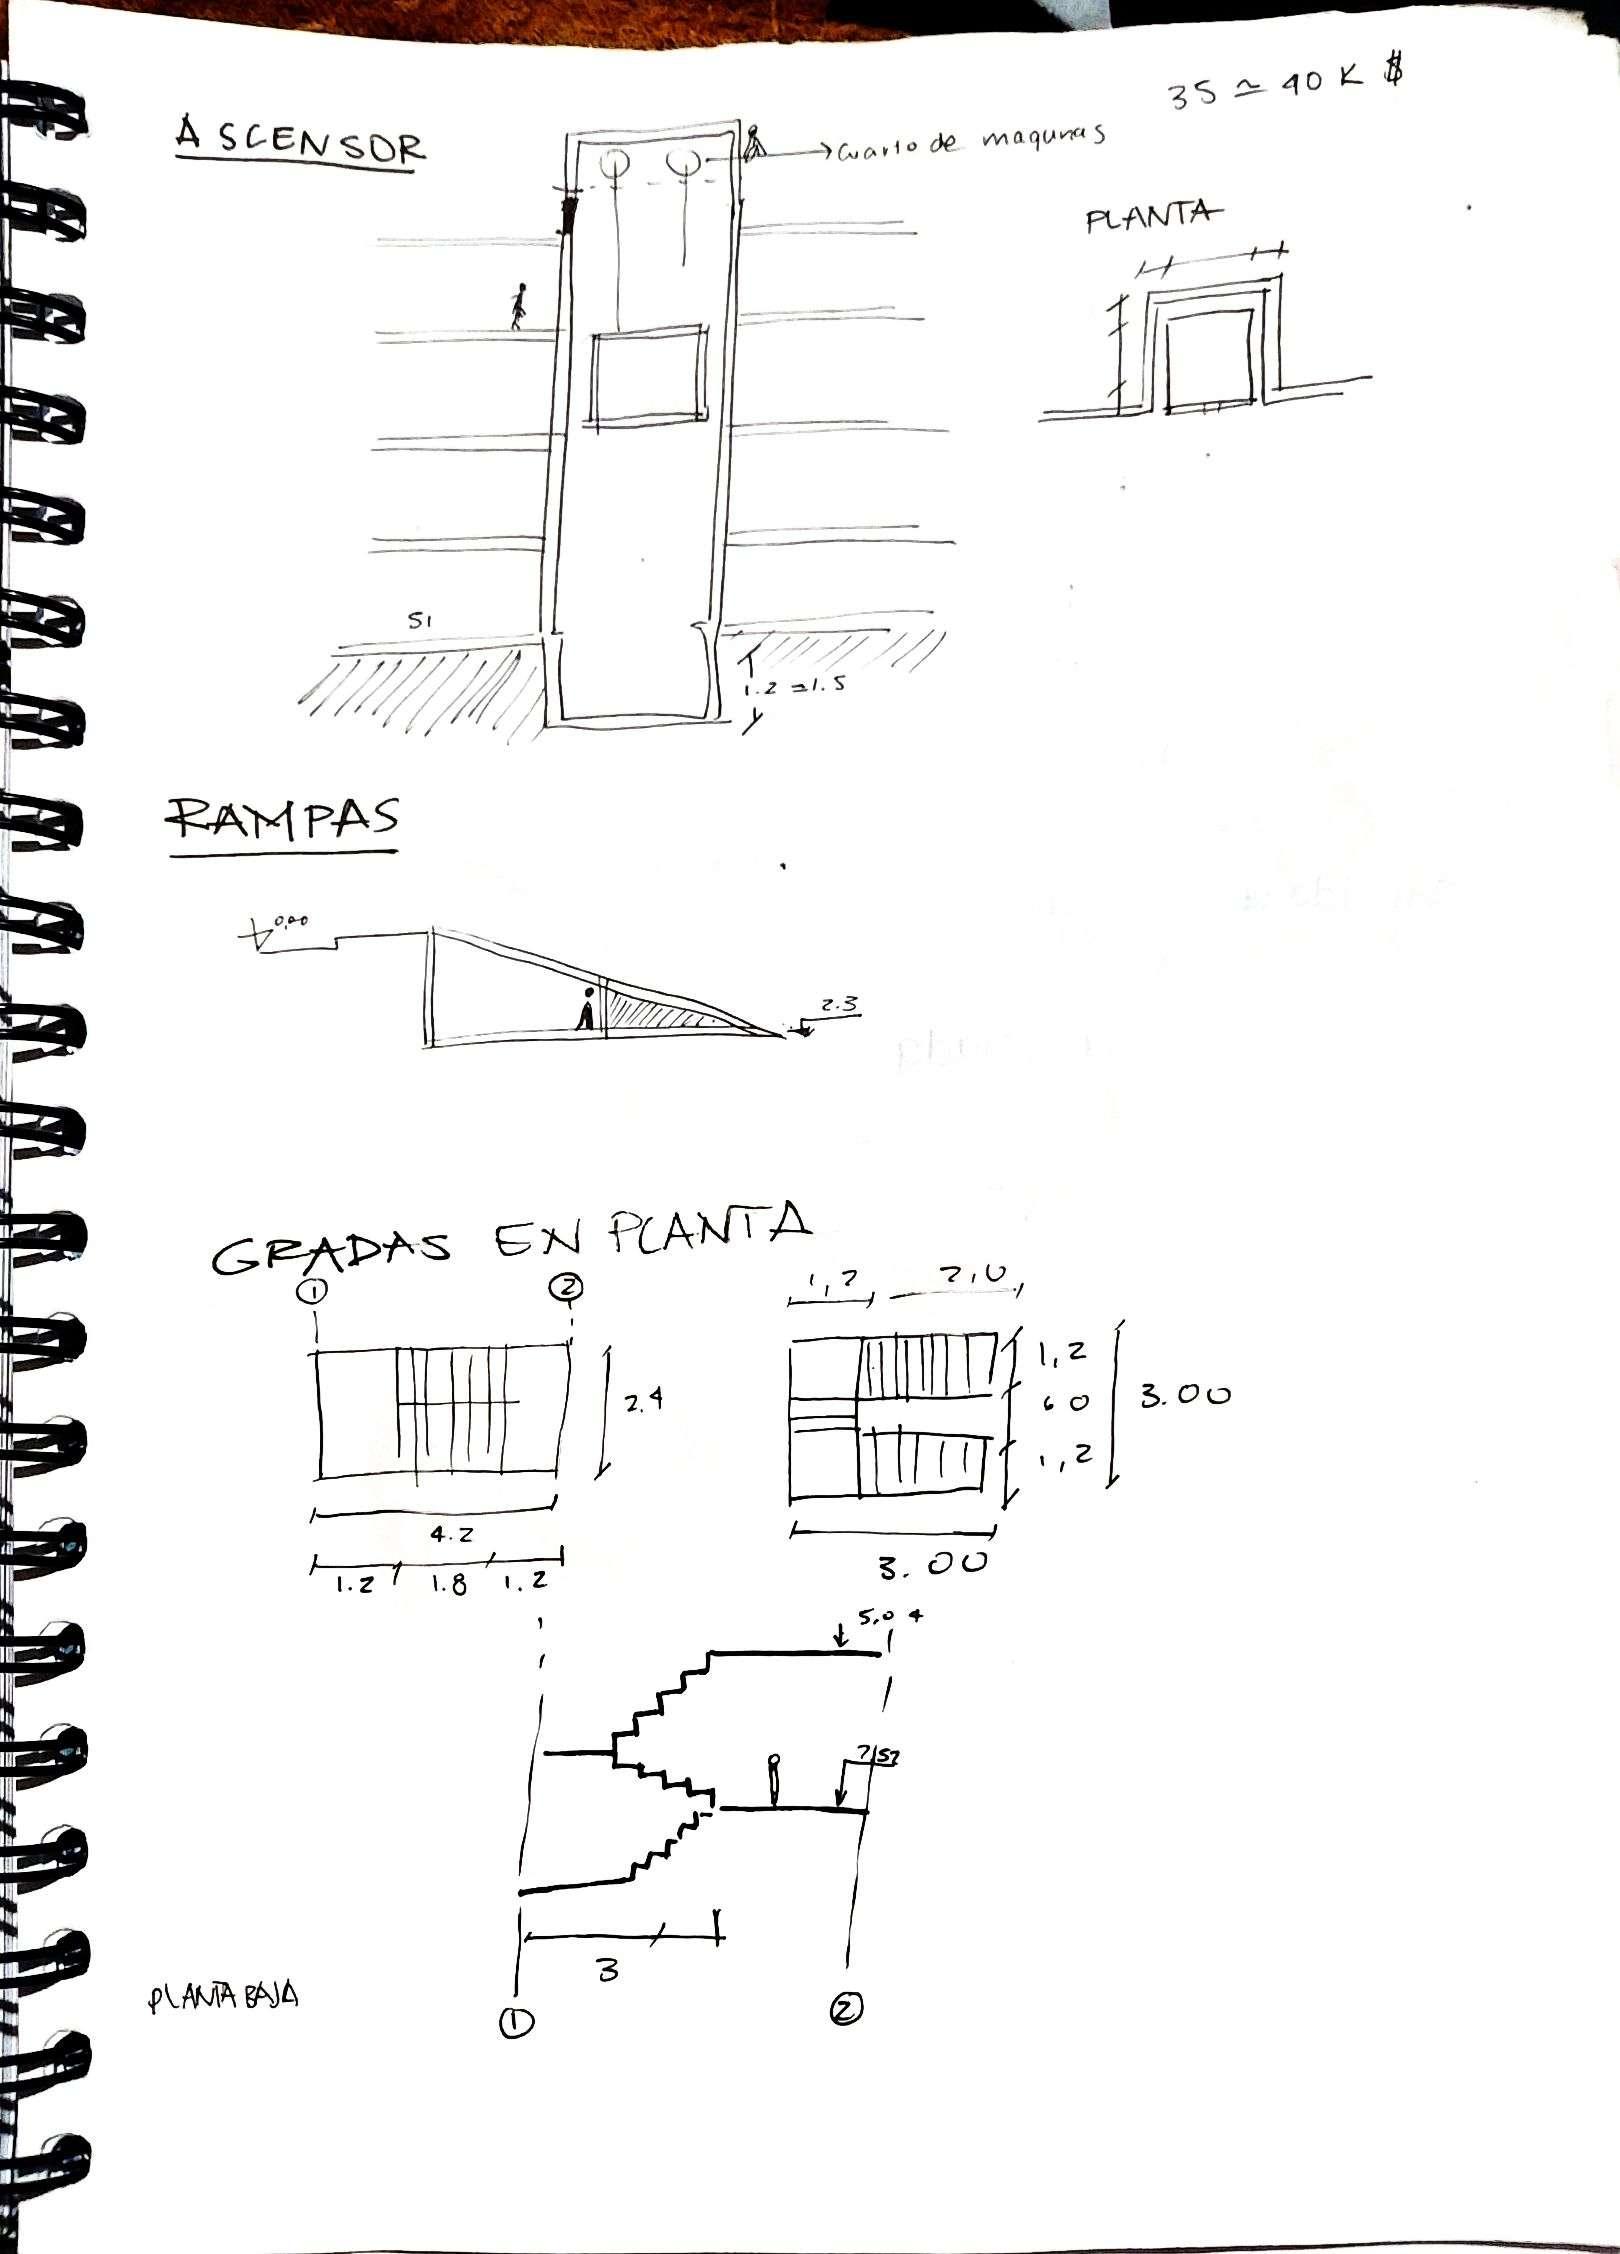 35 ≃ 40 K $
ASCENSOR
cuarto de maqunas
PLANTA
S1
1.2 ≃1.5
RAMPAS
0,00
2.3
GRADAS EN PLANTA
1 2
2.4
4.2
1.2 1.8 1.2
1,2 2,0
1,2
60
1,2
3.00
3.00
5.04
3
PLANTA BAJA
1 2